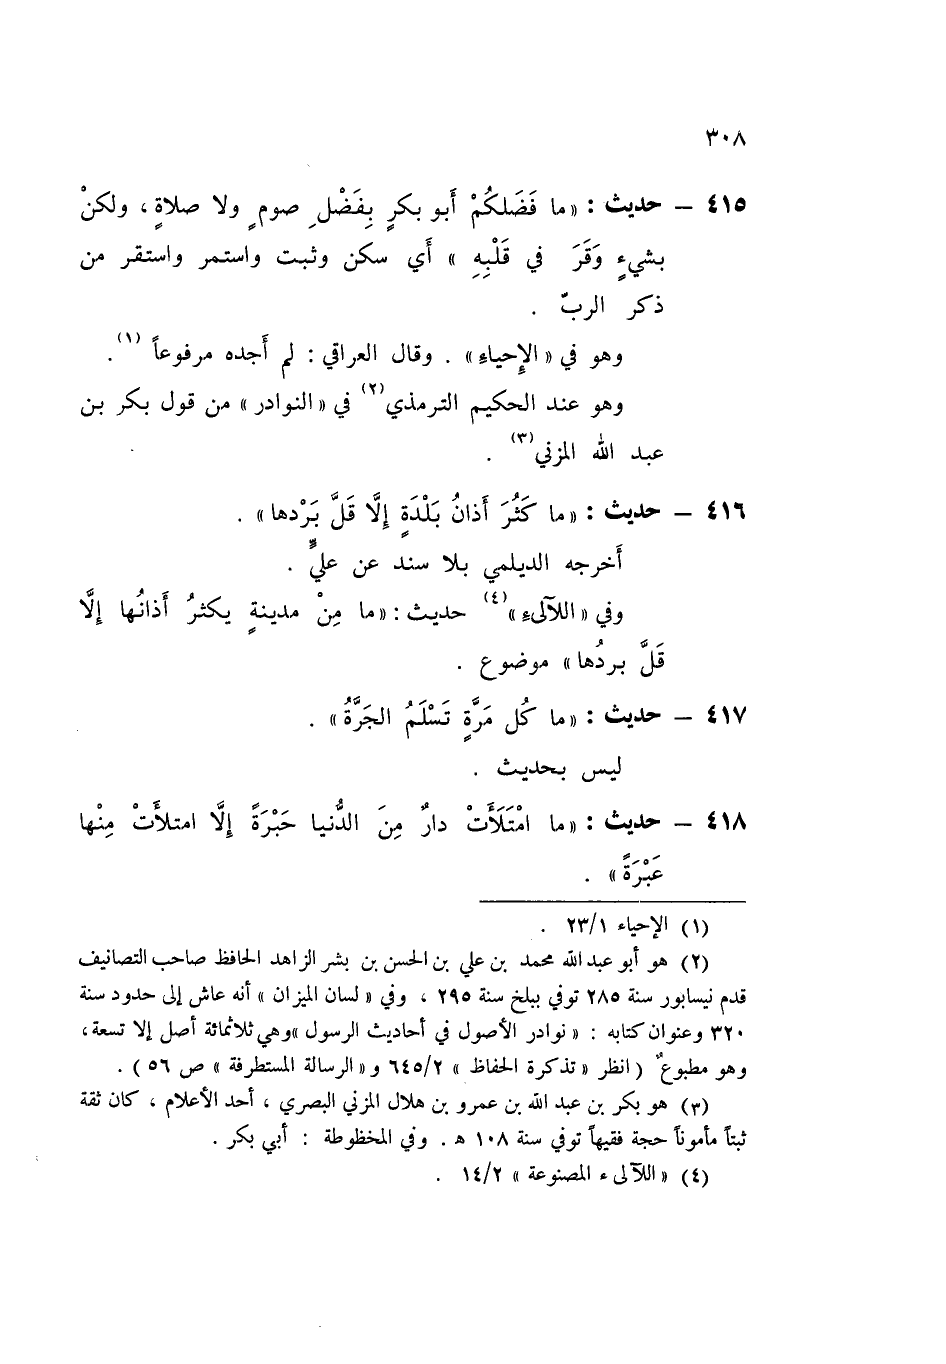 ٣٠٨
٤١٥ – حديث : «ما فَضَلكُمْ أَبو بكرٍ بِفَضْلِ صومٍ ولا صلاةٍ ، ولكنْ
بشيءٍ وَقَرَ في قَلْبِهِ » أَي سكن وثبت واستمر واستقر من
ذكر الربّ .
وهو في «الإِحياء» . وقال العراقي : لم أَجده مرفوعاً (١).
وهو عند الحكيم الترمذي(٢) في «النوادر» من قول بكر بن
عبد الله المزني(٣) .
٤١٦ – حديث : «ما كَثُرَ أَذانُ بَلْدَةٍ إِلَّا قَلَّ بَرْدها» .
أَخرجه الديلمي بلا سند عن عليٍّ .
وفي «اللآلىء»(٤) حديث : «ما مِنْ مدينةٍ يكثرُ أَذانُها إِلَّا
قَلَّ بردُها» موضوع .
٤١٧ – حديث : «ما كُل مَرَّةٍ تَسْلَمُ الجَرَّةُ» .
ليس بحديث .
٤١٨ – حديث : «ما امْتَلَأَتْ دارٌ مِنَ الدُّنيا حَبْرَةً إِلَّا امتلأَتْ مِنْها
عَبْرَةً» .
(١) الإحياء ٢٣/١ .
(٢) هو أبو عبد الله محمد بن علي بن الحسن بن بشر الزاهد الحافظ صاحب التصانيف
قدم نيسابور سنة ٢٨٥ توفي ببلخ سنة ٢٩٥ ، وفي « لسان الميزان » أنه عاش إلى حدود سنة
٣٢٠ وعنوان كتابه : « نوادر الأصول في أحاديث الرسول »وهي ثلاثمائة أصل إلا تسعة ،
وهو مطبوعٌ ( انظر « تذكرة الحفاظ » ٦٤٥/٢ و« الرسالة المستطرفة » ص ٥٦ ) .
(٣) هو بكر بن عبد الله بن عمرو بن هلال المزني البصري ، أحد الأعلام ، كان ثقة
ثبتاً مأموناً حجة فقيهاً توفي سنة ١٠٨ هـ . وفي المخظوطة : أبي بكر .
(٤) « اللآلىء المصنوعة » ١٤/٢ .